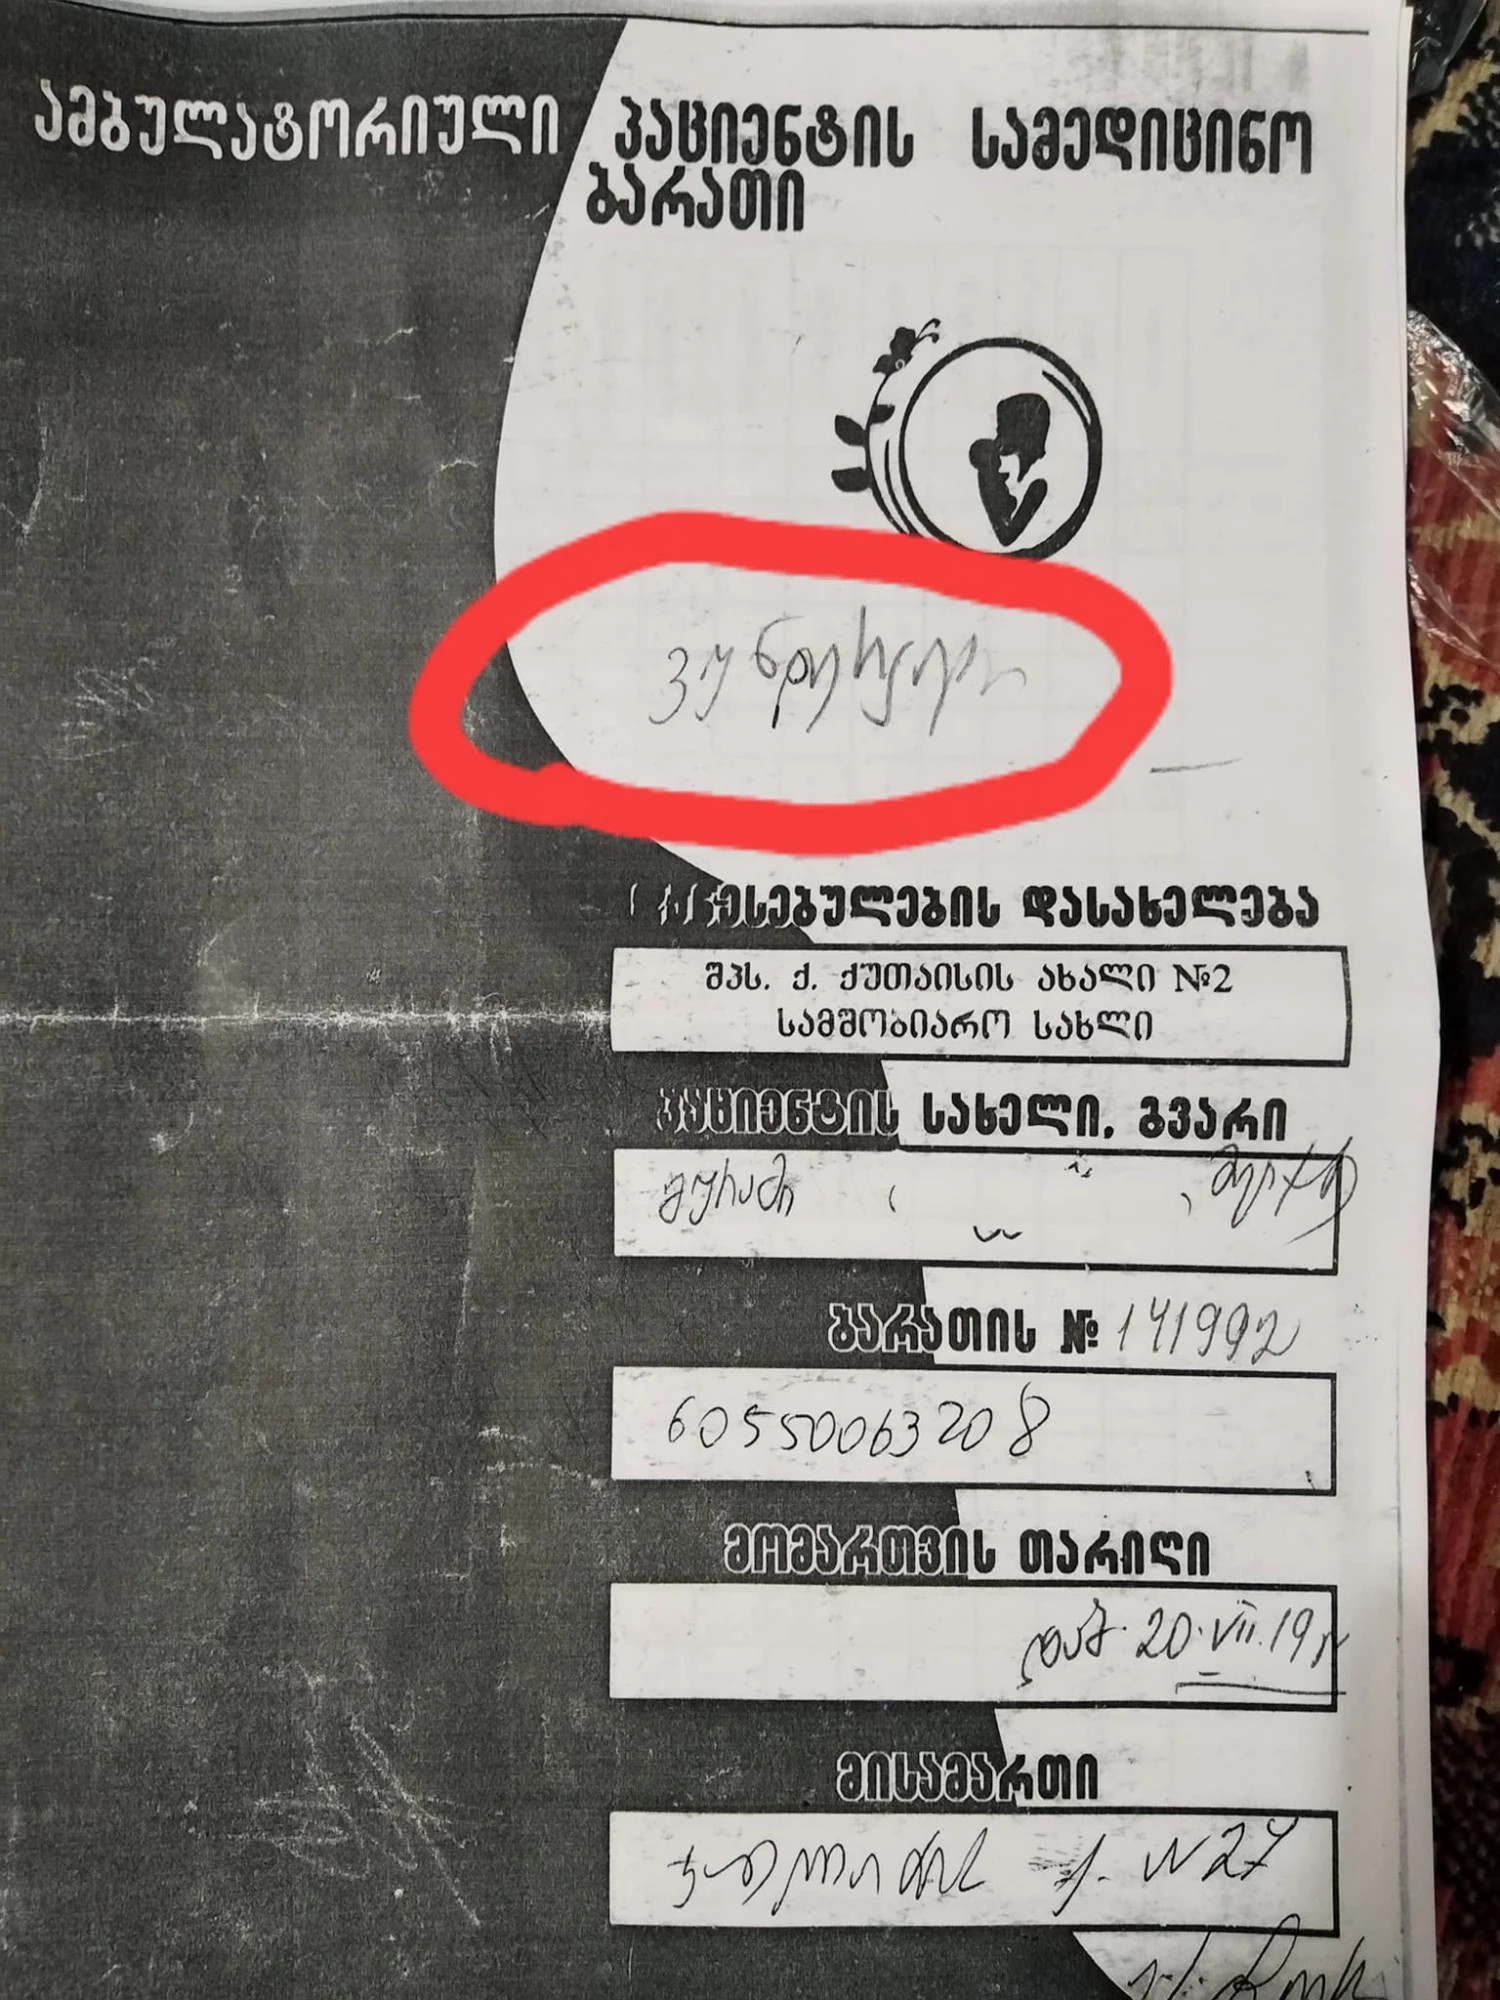 ამბულატორიული პაციენტის სამედიცინო
ბარათი
ვუნდერკინდი
დაწესებულების დასახელება
შპს. ქ. ქუთაისის ახალი №2
სამშობიარო სახლი
პაციენტის სახელი, გვარი
გურამი
ბარათის № 141992
60550063208
მომართვის თარიღი
დაბ. 20.VII.19წ
მისამართი
ქ. N27